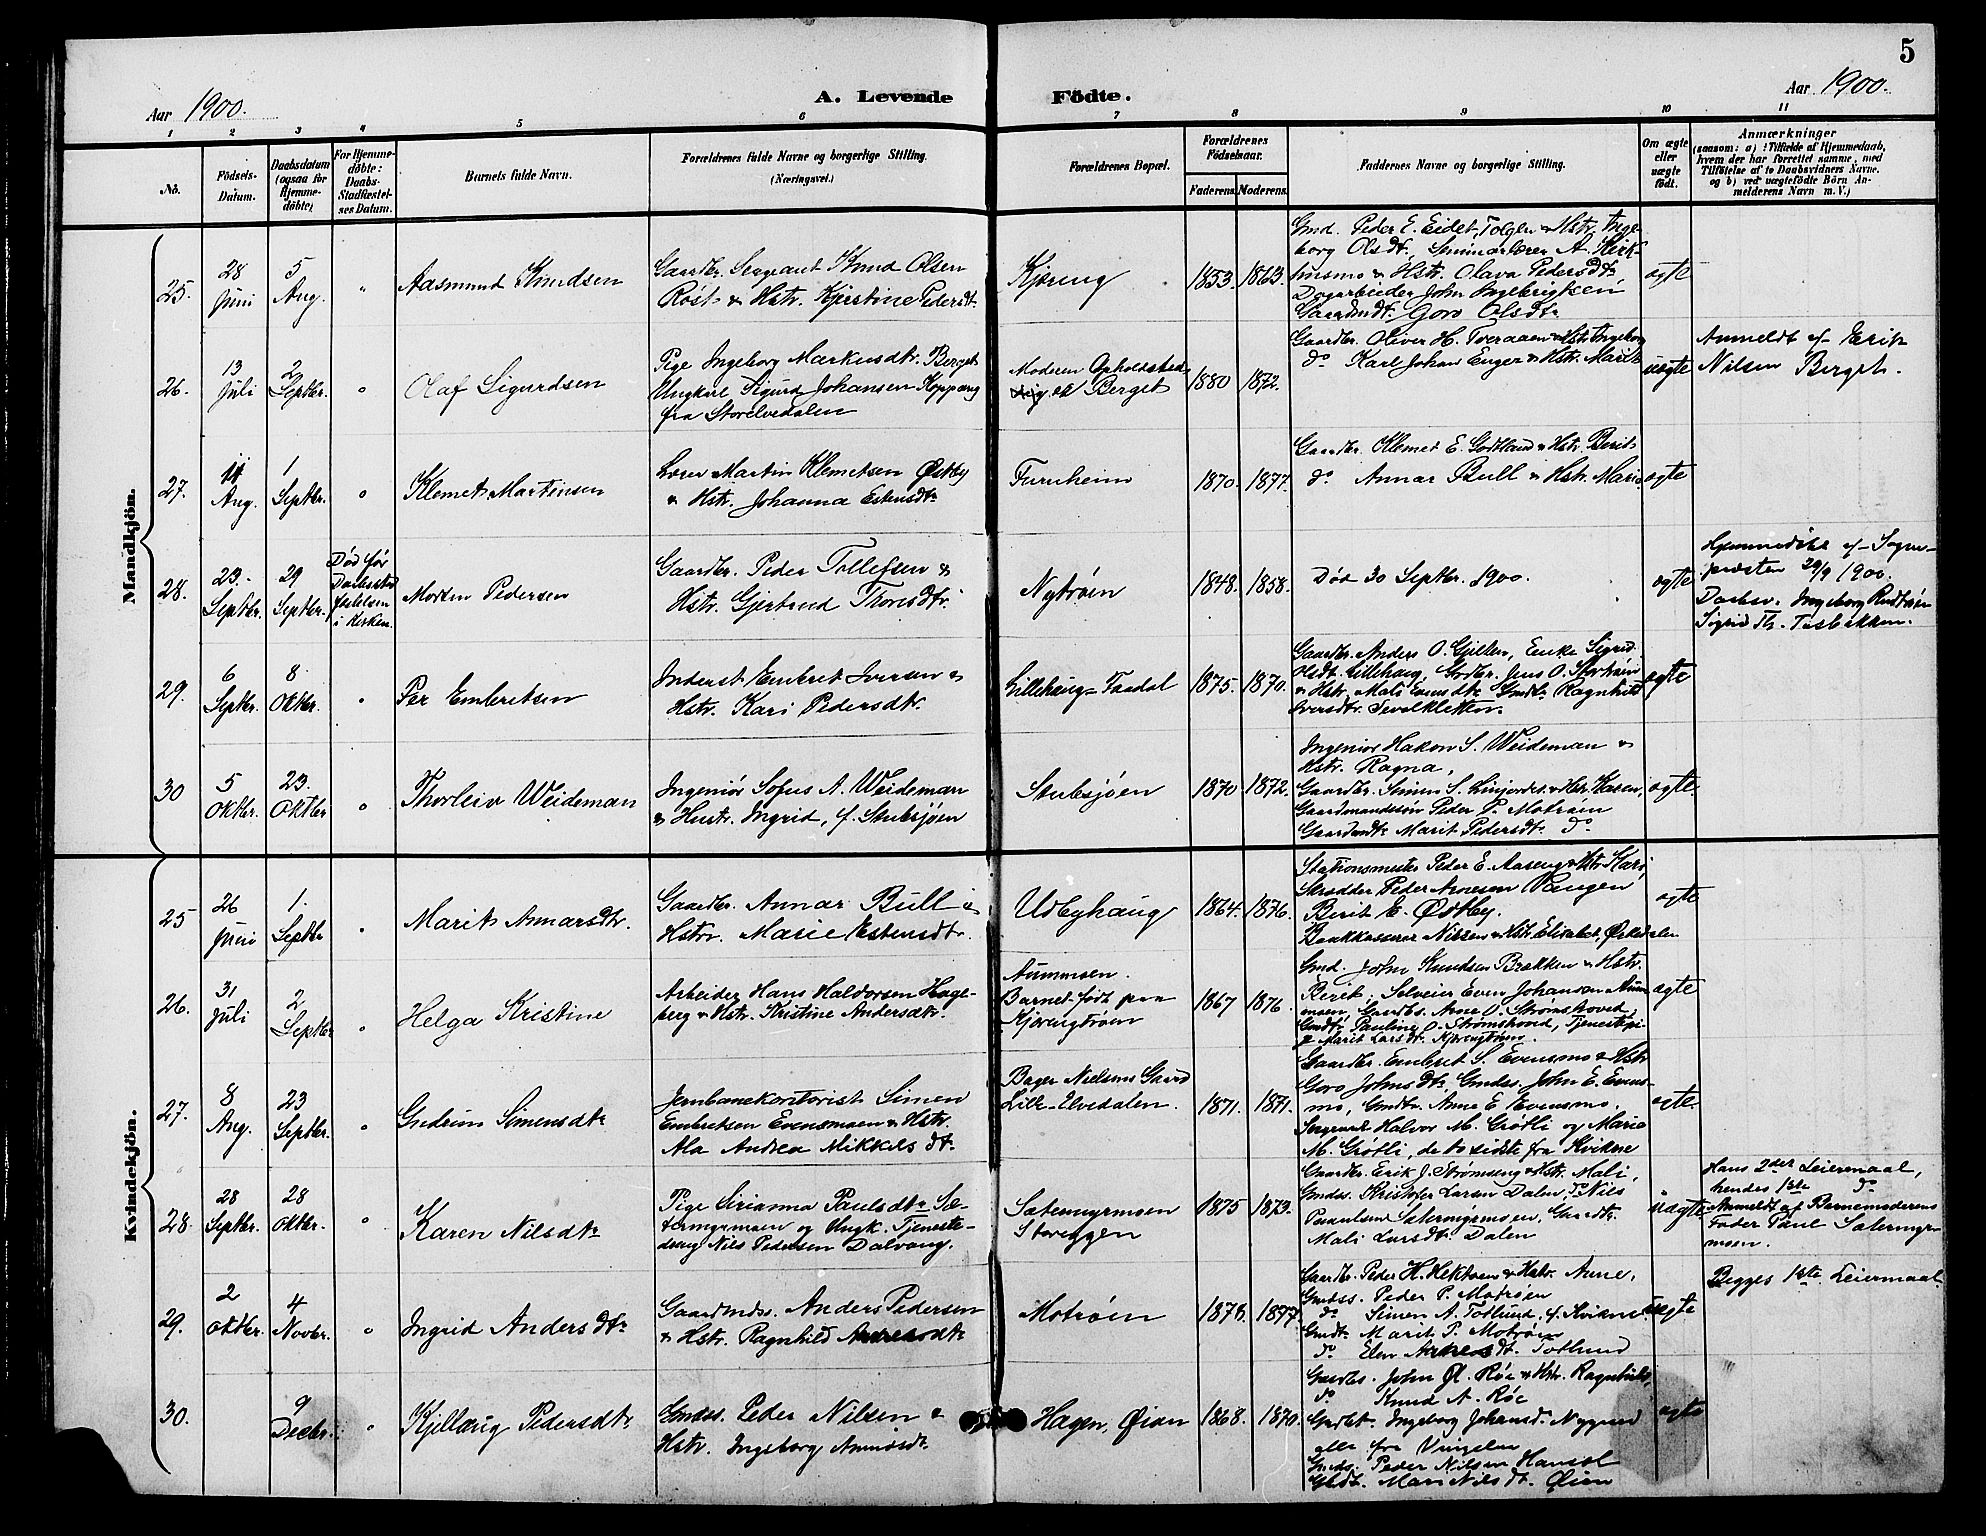 5
Aar 1900.
A. Levende Födte.
Aar 1900.
1 2 3 4 5 6 7 8 9 10 11
No.
Födsels-
Datum.
Daabsdatum
(ogsaa for
Hjemme-
döbte)
For Hjemme-
döbte:
Daabs-
Stadfæstel-
ses Datum.
Barnets fulde Navn.
Forældrenes fulde Navne og borgerlige Stilling.
(Næringsvei.)
Forældrenes Bopæl.
Forældrenes
Födselsaar.
Faderens. Moderens.
Faddernes Navne og borgerlige Stilling.
Om ægte
eller
uægte
födt.
Anmærkninger
(saasom: a) i Tilfælde af Hjemmedaab,
hvem der har forrettet samme, med
Tilföielse af to Daabsvidners Navne,
og b) ved uægtefödte Börn An-
melderens Navn m. V.)
Mandkjön.
25.
28
Juni
5
Aug.
"
Aasmund Knudsen
Gaardbr. Sergeant Knud Olsen
Röst & Hstr. Kjerstine Pedersdt.
Kjøreng
1853. 1863.
Gmd. Peder E. Eidet, Tolgen & Hstr. Inge-
borg Olsdt., Seminarlærer A. Kirk-
husmo & Hstr. Olava Pedersdt.
Dagarbeider John Ingebrigtsen
Gaardmdt. Goro Olsdt.
ægte
26.
13
Juli
2
Septbr.
"
Olaf Sigurdsen
Pige Ingeborg Markusdtr. Berget
Ungkarl Sigurd Johansen Koppang
fra Storelvedalen
Moderen Opholdsted
Berget
1880 1872.
Gaardbr. Oliver H. Tveraaen & Hstr. Ingeborg
do Karl Johan Enger & Hstr. Marit
uægte
Anmeldt af Erik
Nilsen Berget.
27.
11
Aug.
1
Septbr.
"
Klemet Martinsen
Lærer Martin Klemetsen Østby
& Hstr. Johanna Estensdtr
Furuheim
1870. 1877.
Gaardbr. Klemet E. Godtland & Hstr. Berit
do Annar Bull & Hstr. Marie
ægte
28.
23.
Septbr.
29
Septbr.
Död för
Daabsstad
fæstelsen
i Kirken.
Morten Pedersen
Gaardbr. Peder Tollefsen &
Hstr. Gjertrud Thoresdtr.
Nytrøen
1848. 1858.
Död 30 Septbr. 1900.
ægte
Hjemmedöbt af Sogne-
presten 29/9 1900.
Daabsv. Ingeborg Rudtrøen
Sigrid Th. Tusbakken.
29.
6
Septbr.
8
Oktbr.
"
Per Embretsen
Inderst Embret Iversen &
Hstr. Kari Pedersdtr.
Lillehaug-Faadal
1875. 1870.
Gaardbr. Anders O. Gjelten, Enke Sigrid
Olsdt. Lillehaug, Grdbr. Jens O. Stortrøen
& Hstr. Mali Evensdt. Gmdt. Ragnhild
Iversdtr. Sevalkletten.
ægte
30
5
Oktbr.
23.
Oktbr
"
Thorleiv Weideman
Ingeniör Sofus A. Weideman
& Hustr. Ingrid, f. Stubsjøen
Stubsjøen
1870 1872.
Ingeniör Hakon S. Weideman &
Hstr. Ragna,
Gaardbr. Simen S. & Hstr. Karen,
Gaardmandssön Peder P. Motrøen
Gaardmdt. Marit Pedersdt. do
ægte
Kvindekjön.
25
26
Juni
1.
Septbr
"
Marit Annarsdtr.
Gaardbr. Annar Bull &
Hstr. Marie Estensdtr.
Udbyhaug
1864. 1876.
Stationsmester Peder E. Aaseng & Hstr. Kari,
Skrædder Peder Arnesen Vangen
Berit E. Østby.
Bankkasserer Nilsen & Hstr. Elisabet, Øskedalen
ægte
26.
31
Juli
2
Septbr
"
Helga Kristine
Arbeider Hans Haldorsen Hage-
berg & Hstr. Kristine Andersdtr.
Aummoen.
Barnet født paa
Kjørengtrøen
1867 1876.
Gmd. John Knudsen Brækken & Hstr.
Berit, Selveier Even Johansen Aum-
moen, Gaardbs. Arne O. Strømshoved,
Gmdt. Pauline O. Strømshoved, Tjenestepi-
ge Marit Larsdt. Kjørengtrøen.
ægte
27.
8
Aug.
23
Septbr.
"
Gudrun Simensdtr
Jernbanekontorist Simen
Embretsen Evensmoen & Hstr.
Ala Andrea Mikkelsdt.
Bager Nielsens Gaard
Lille-Elvedalen.
1871. 1871.
Gaardbr. Embret S. Evensmo & Hstr
Goro Johnsdt., Gmdss. John E. Evens-
mo, Gmdtr. Anne E. Evensmo.
Sergeant Halvor M. Grötli og Marie
M. Grötli, de to sidste fra Kvikne
ægte
28.
28
Septbr.
28
Oktbr.
"
Karen Nilsdtr
Pige Arianna Paulsdtr Sæ-
termyrmoen og Ungk. Tjeneste-
dreng Nils Pedersen Dalvang.
Sætermyrmoen
Storeggen
1875 1873.
Gaardbr. Erik J. Strømseng & Hstr. Mali,
Gmdss. Kristofer Larsen Dalen, do Nils
Paulsen Sætermyrmoen, Gaardtr.
Mali Larsdt. Dalen
uægte
Hans 2det Leiermaal,
hendes 1ste do
Anmeldt af Barnemoderens
Fader Paul Sætermyr-
moen.
29.
2
Oktbr.
4
Novbr.
"
Ingrid Andersdtr
Gaardmdss. Anders Pedersen
& Hstr. Ragnhild
Motrøen
1877
Gaardbr. Peder H. Hektoen & Hstr. Anne,
Gmdss. Peder P. Motrøen
do Simen A. Totlund, f. Kvikne
Gmdt. Marit P. Motrøen
do Elen Totlund
uægte
Begges 1ste Leiermaal
30.
9
Decbr.
"
Kjellaug Pedersdtr
Gmdss. Peder Nilsen &
Hstr. Ingeborg
Hagen, Øian
1868. 1870.
Gaardbs. John Ol. Røe & Hstr. Ragnhild,
do Knud A. Røe
Gmdt. Ingeborg Johansd. Nygaard
alle fra Vingelen
Gmds. Peder Nilsen
Gmdt. Mari Nilsdt. Øien
ægte